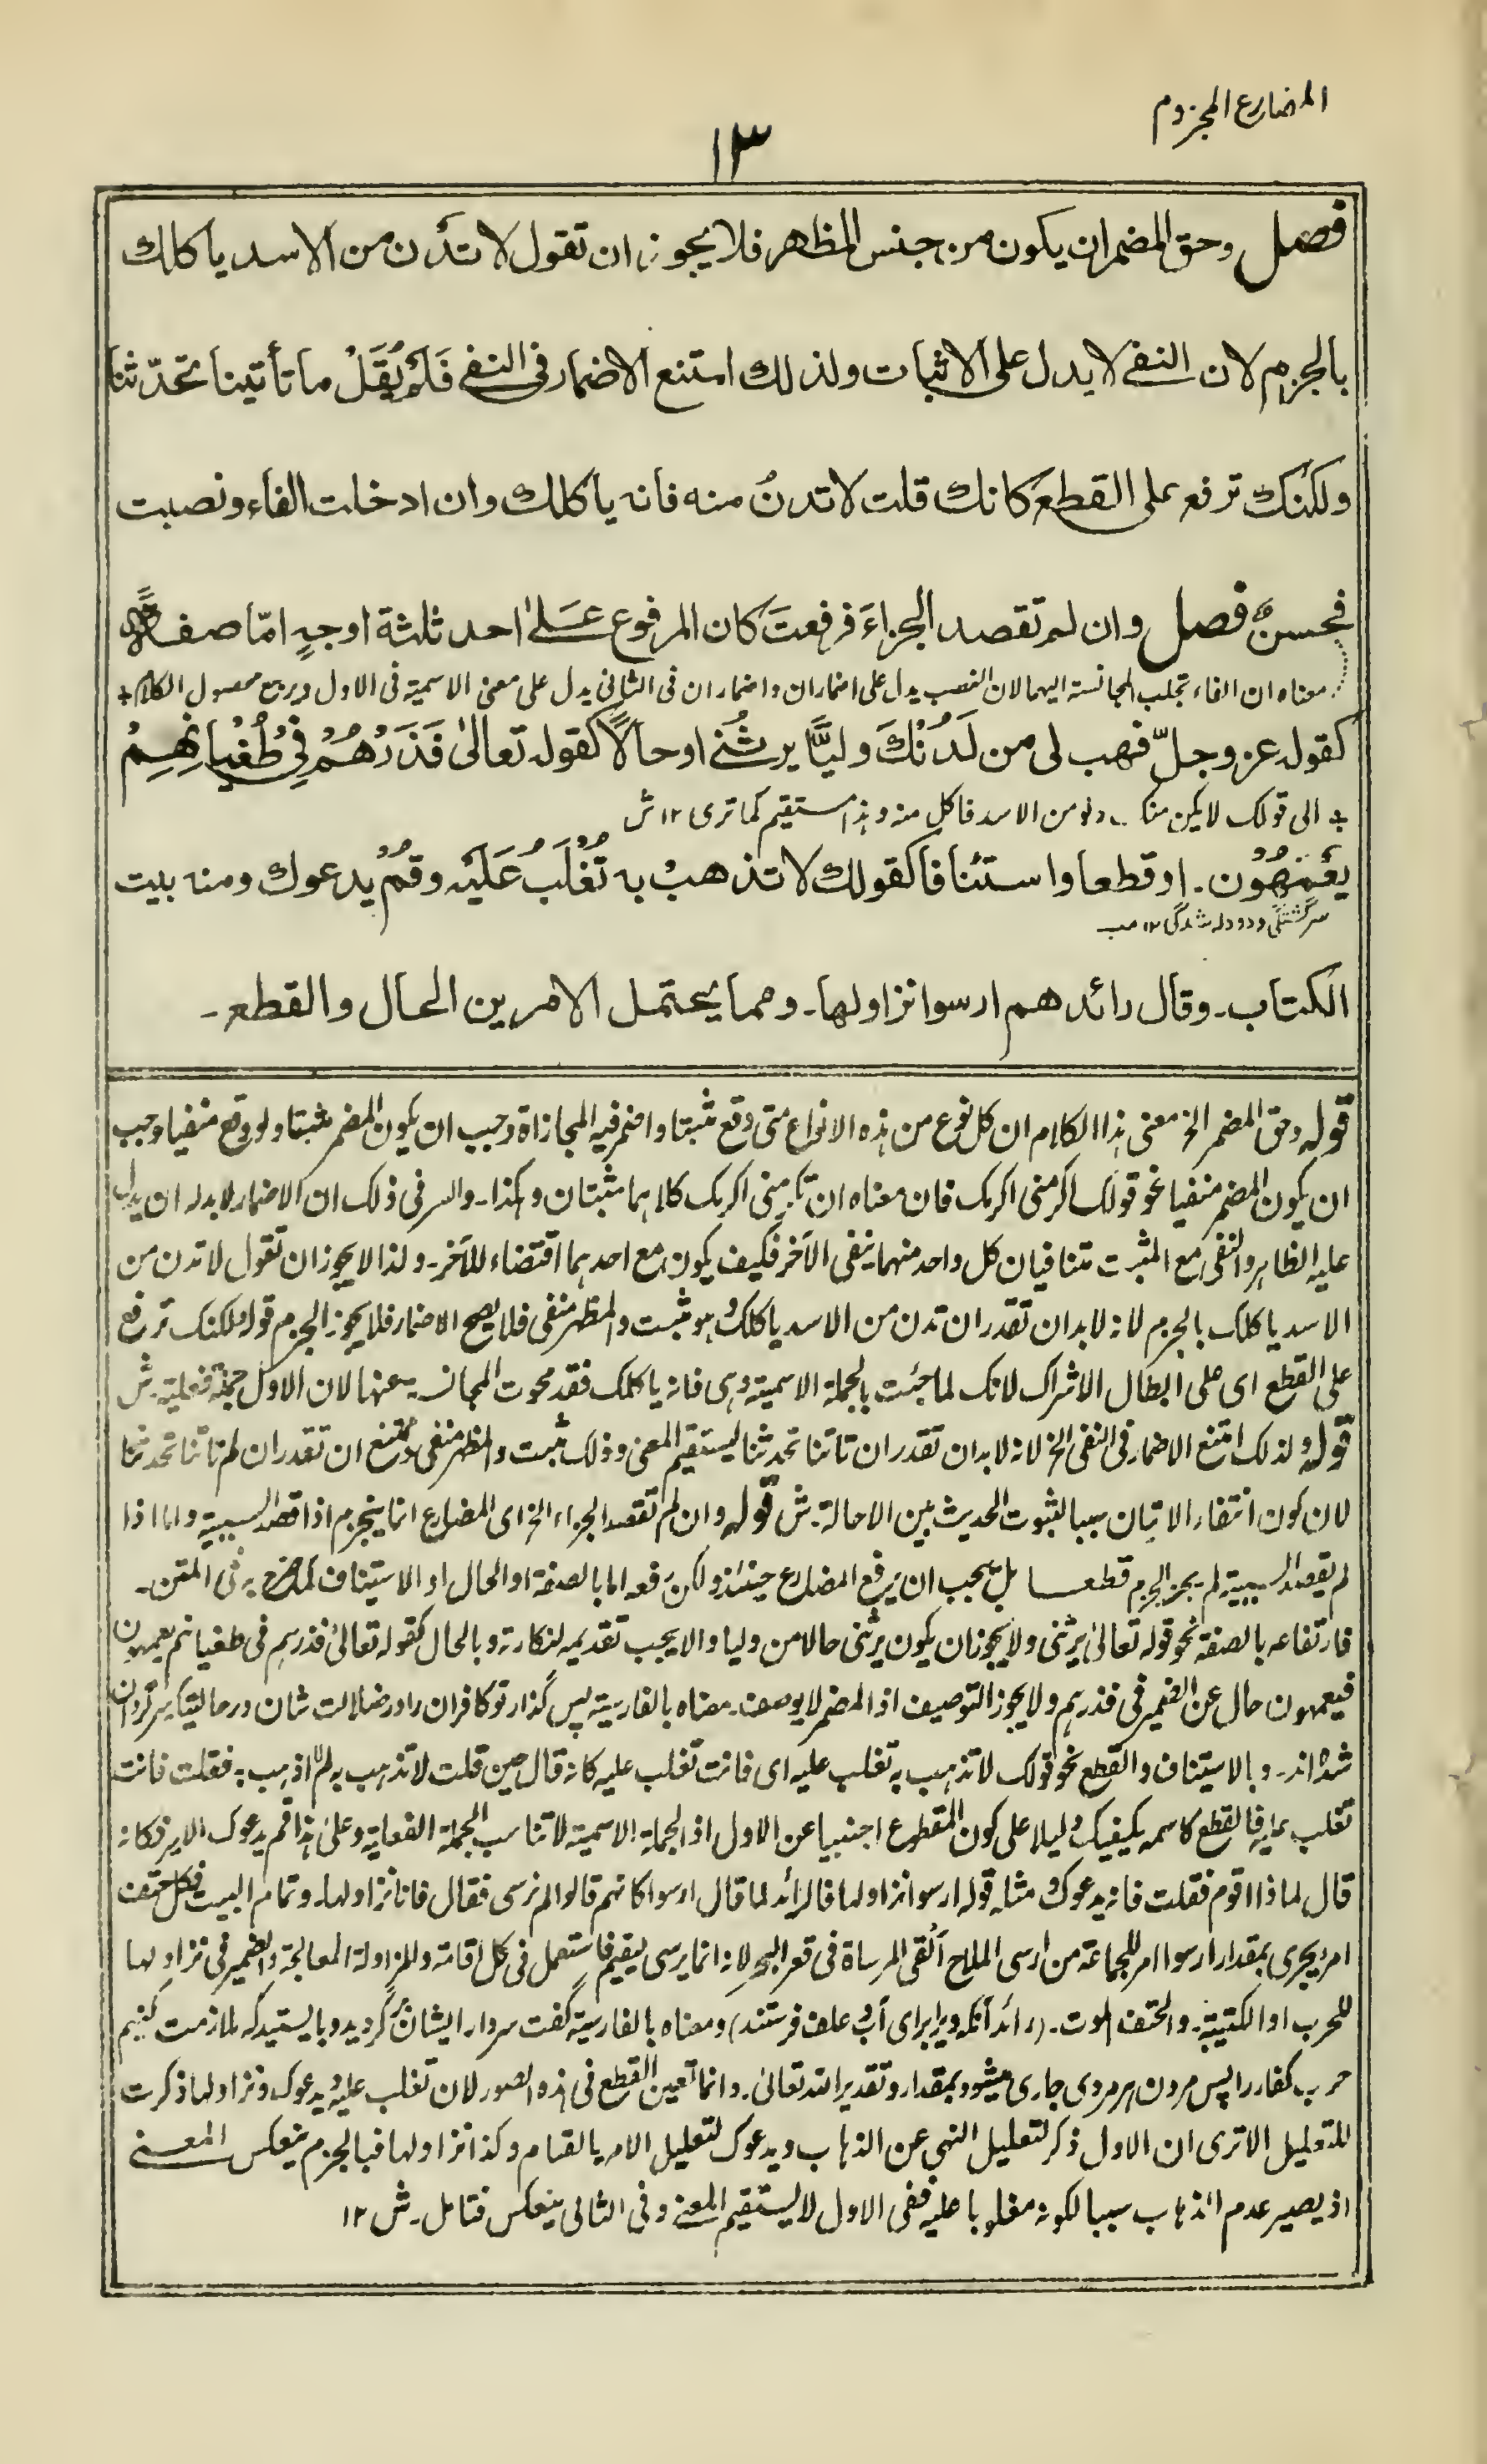 المضارع المجزوم
١٣
فصل وحق المضمران يكون من جنس المظهر فلا يجوز ان تقول لا تدن من الاسد ياكلك
بالجزم لان النفى لا يدل على الاثبات ولذلك امتنع الاضمار فى النفى فَلَمْ يُقَلْ ما تأتينا تحدّثنا
ولكنك ترفع على القطع كانك قلت لا تدنُ منه فانه ياكلك وان ادخلت الفاء ونصبت
فحسن فصل وان لم تقصد الجزاءَ فرفعتَ كان المرفوع عَلىٰ احد ثلثة اوجهٍ امّا صفةً
معناه ان الفاء تجلب المجانسة اليهما لان النصب يدل على اضمار ان واضمار ان فى الثانى يدل على معنى الاسمية فى الاول ويرجع محصول الكلام +
كقوله عز وجلّ فهب لى من لَدُنْكَ وليًّا يرِثُنى اوحالاً كقوله تعالىٰ فَذَرْهُمْ فِى طُغْيَانِهِمْ
+ الى قولك لا يكن منك دنو من الاسد فاكل منه وهذا مستقيم كما ترى ١٢ ش
يعْمَهُوْن. اوقطعا واستئنافا كقولك لا تذهبْ به تُغْلَبُ عَلَيْه وقمْ يدعوك ومنه بيت
سرگشتگى ودودله شدگى ١٢ مب
الكتاب۔ وقال رائدهم ارسوا نزاولها۔ ومما يحتمل الامرين الحال والقطع۔
قوله وحق المضمر الخ معنى هذا الكلام ان كل نوع من هذه الانواع متى وقع مثبتا واضمر فيه المجازاة وجب ان يكون المضمر مثبتا ولو وقع منفيا وجب
ان يكون المضمر منفيا نحو قولك اكرمنى اكرمك فان معناه ان تكرمنى اكرمك كلاهما مثبتان وهكذا۔ والسر فى ذلك ان الاضمار لابد له ان يدل
عليه الظاهر والنفى مع المثبت متنافيان كل واحد منهما ينفى الآخر فكيف يكون مع احدهما اقتضاء للآخر۔ ولذا لا يجوز ان تقول لا تدن من
الاسد ياكلك بالجزم لانه لابد ان تقدر ان تدن من الاسد ياكلك وهو مثبت والمظهر منفى فلا يصح الاضمار فلا يجوز الجزم قوله ولكنك ترفع
على القطع اى على ابطال الاشراك لانك لما جئت بالجملة الاسمية وهى فانه ياكلك فقد محوت المجانسة عنها لان الاول جملة فعلية۔ ش
قوله ولذلك امتنع الاضمار فى النفى الخ لانه لابد ان تقدر ان تاتنا تحدثنا ليستقيم المعنى وذلك مثبت والمظهر منفى وممتنع ان تقدر ان لم تاتنا تحدثنا
لان كون انتفاء الاتيان سببا لثبوت الحديث بين الاحالة۔ ش قوله وان لم تقصد الجزاء الخ اى المضارع انما ينجزم اذا قصد السببية واما اذا
لم يقصد السببية لم يجز الجزم قطعا بل يجب ان يرفع المضارع حينئذ ولكن رفعه اما بالصفة او الحال او الاستيناف كما صرح به فى المتن۔
فارتفاعه بالصفة نحو قوله تعالىٰ يرثنى ولا يجوز ان يكون يرثنى حالا من وليا والا يجب تقديمه لنكارته وبالحال كقوله تعالىٰ فذرهم فى طغيانهم يعمهون
فيعمهون حال عن الضمير فى فذرهم ولا يجوز التوصيف اذ المضمر لا يوصف۔ معناه بالفارسية پس گذار تو كافران را در ضلالت شان در حاليكه سرگردان
شده اند۔ وبالاستيناف والقطع نحو قولك لا تذهب به تغلب عليه اى فانت تغلب عليه كانه قال حين قلت لا تذهب به لم لا اذهب به فقلت فانت
تغلب عليه فالقطع كاسمه يكفيك دليلا على كون المقطوع اجنبيا عن الاول اذ الجملة الاسمية لا تناسب الجملة الفعلية وعلى هذا قم يدعوك الامير فكانه
قال لماذا اقوم فقلت فانه يدعوك ومثله قوله ارسوا نزاولها فالرائد لما قال ارسوا كانهم قالوا لم نرسى فقال فانا نزاولها۔ وتمام البيت فكل حتف
امرئ يجرى بمقدار ارسوا امر للجماعة من ارسى الملاح القى المرساة فى قعر البحر لانه انما يرسى ليقيم فاستعمل فى كل اقامة والمزاولة المعالجة والضمير فى نزاولها
للحرب او الكتيبة۔ والحتف الموت۔ (رائد آنكه ويرا براى آب و علف فرستند) ومعناه بالفارسية گفت سردار ايشان گرديد وبايستيد كه ملازمت كنيم
حرب كفار را پس مردن هر مردى جارى ميشود بمقدار وتقدير الله تعالىٰ۔ وانما تعين القطع فى هذه الصور لان تغلب عليه ويدعوك ونزاولها ذكرت
للتعليل الا ترى ان الاول ذكر لتعليل النهى عن الذهاب ويدعوك لتعليل الامر بالقيام وكذا نزاولها فبالجزم ينعكس المعنى
اذ يصير عدم الذهاب سببا لكونه مغلوبا عليه ففى الاول لا يستقيم المعنى وفى الثانى ينعكس فتامل۔ ش ١٢